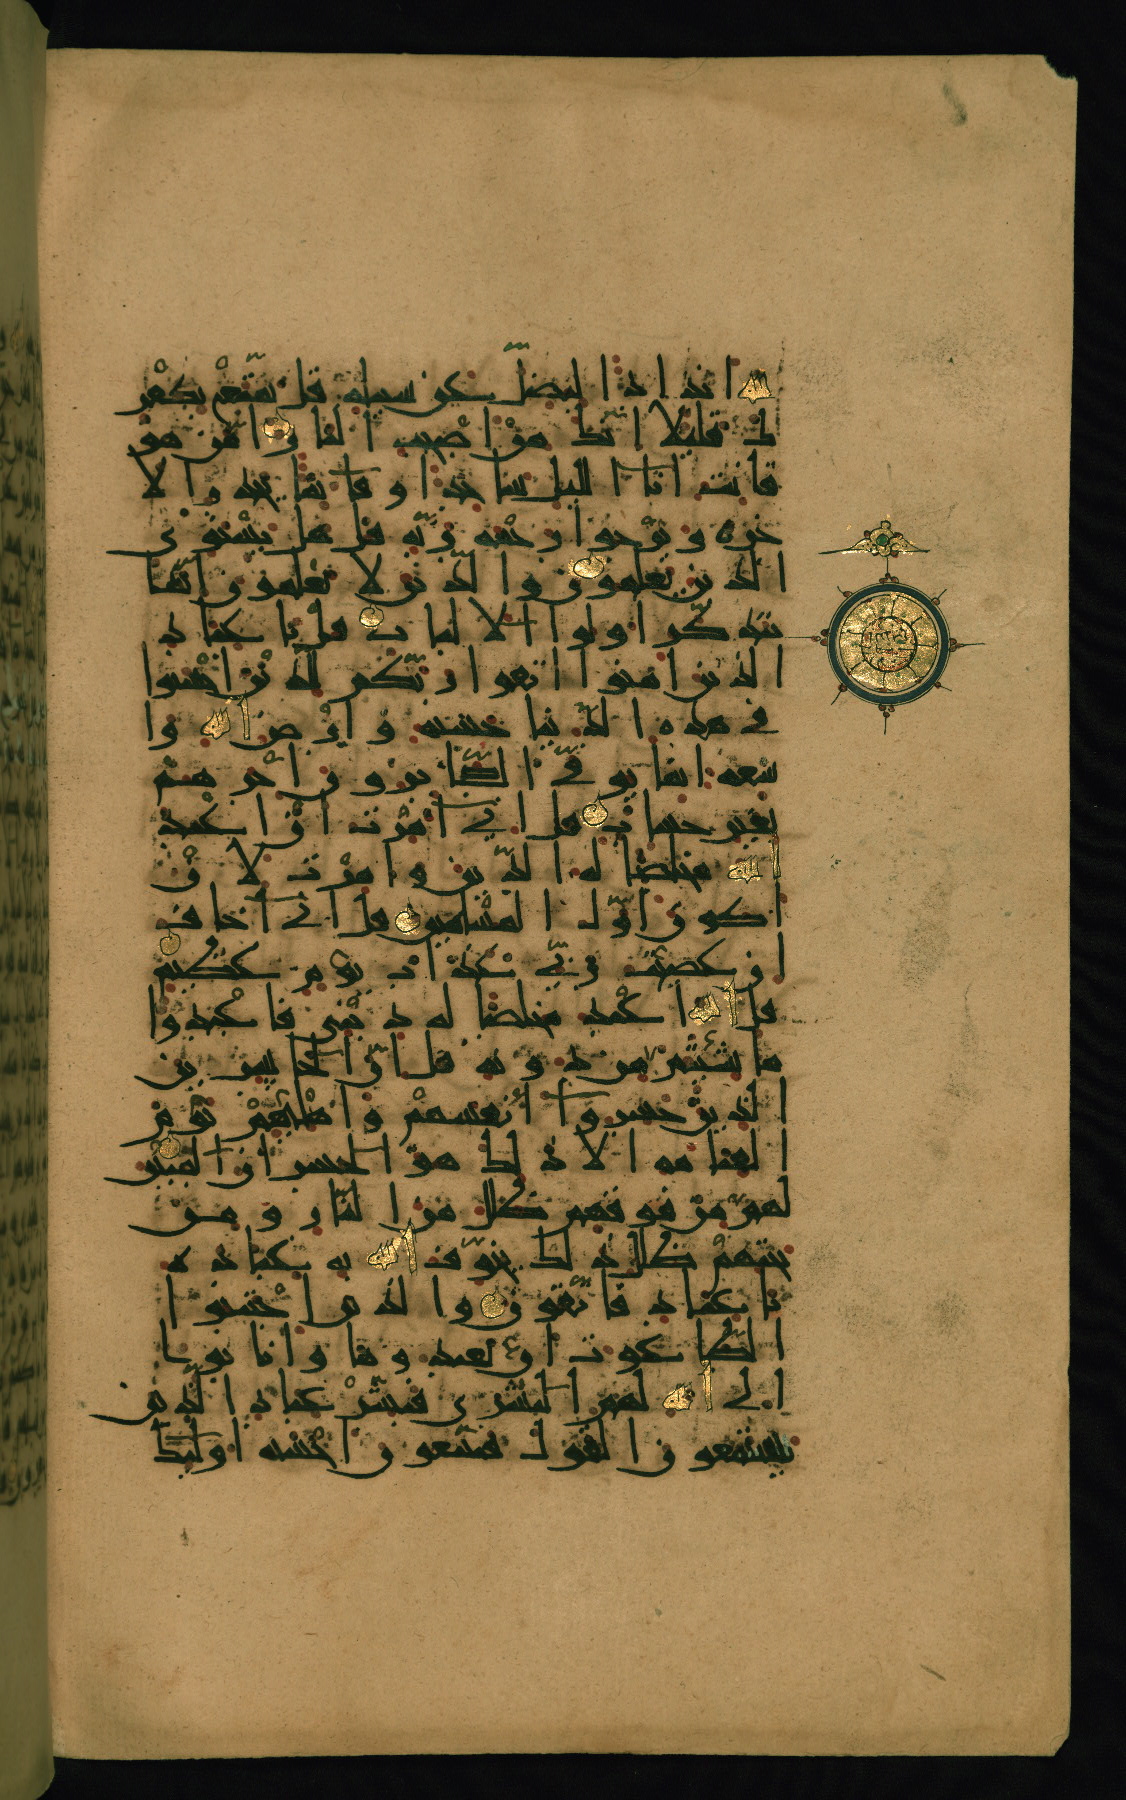 لله اندادا ليضل عن سبيله قل تمتع بكفر
ك قليلا انك من اصحب النار امن هو
قانت انا الليل ساجدا وقائما يحذر الا
خرة ويرجوا رحمة ربه قل هل يستوى
الذين يعلمون والذين لا يعلمون انما
يتذكر اولوا الالباب قل يا عباد
الذين امنوا اتقوا ربكم للذين احسنوا
في هذه الدنيا حسنة وارض الله وا
سعة انما يوفى الصابرون اجرهم
بغير حساب قل انى امرت ان اعبد
الله مخلصا له الدين وامرت لان
اكون اول المسلمين قل انى اخاف
ان عصيت ربى عذاب يوم عظيم
قل الله اعبد مخلصا له دينى فاعبدوا
ما شئتم من دونه قل ان الخاسرين
الذين خسروا انفسهم واهليهم يوم
القيامة الا ذلك هو الخسران المبين
لهم من فوقهم ظلل من النار ومن
تحتهم ظلل ذلك يخوف الله به عباده
يا عباد فاتقون والذين اجتنبوا
الطاغوت ان يعبدوها وانابوا
الى الله لهم البشرى فبشر عباد الذين
يستمعون القول فيتبعون احسنه اوليك